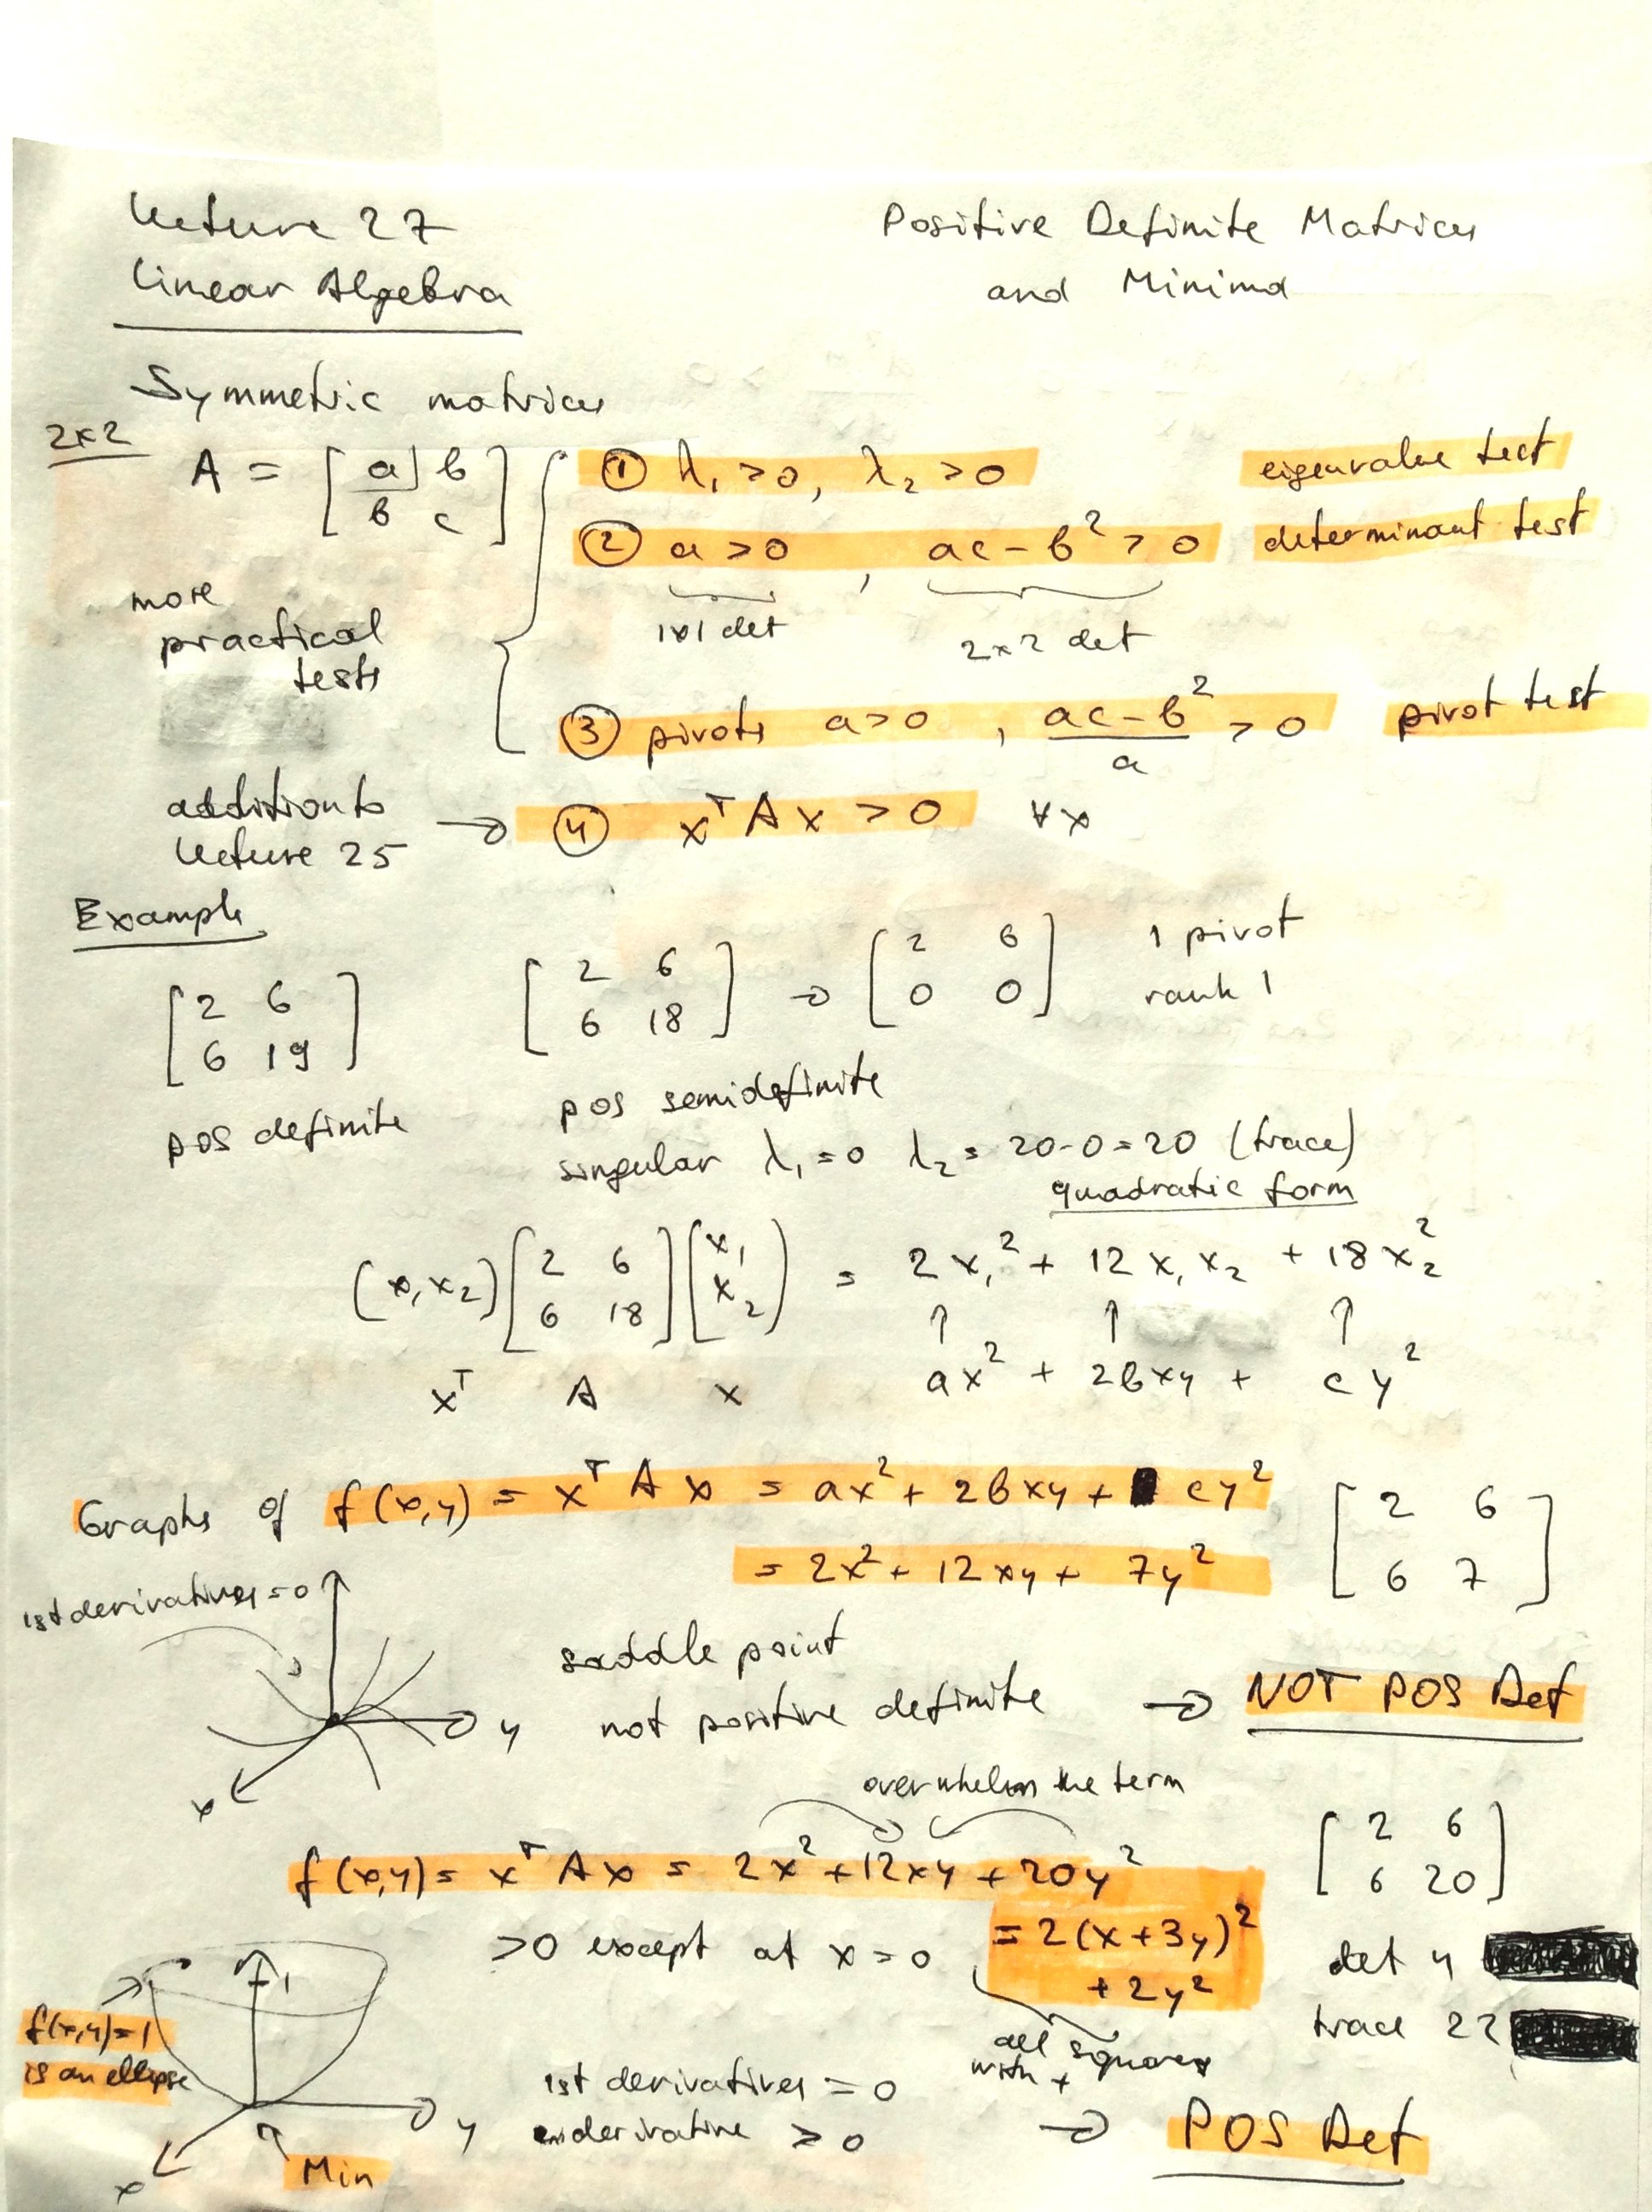 Lecture 27
Linear Algebra
Positive Definite Matrices
and Minima
Symmetric matrices
2x2
A = [a b
b c]
① λ₁ > 0, λ₂ > 0 eigenvalue test
② a > 0 , ac - b² > 0 determinant test
1x1 det 2x2 det
more
practical
tests
③ pivots a > 0 , (ac - b²)/a > 0 pivot test
addition to
lecture 25
→ ④ xᵀAx > 0 ∀x
Example
[2 6
6 19]
pos definite
[2 6
6 18] → [2 6
0 0]
1 pivot
rank 1
pos semidefinite
singular λ₁ = 0 λ₂ = 20-0 = 20 (trace)
quadratic form
(x₁ x₂) [2 6
6 18] [x₁
x₂] = 2x₁² + 12x₁x₂ + 18x₂²
↑ ↑ ↑
xᵀ A x
ax² + 2bxy + cy²
Graphs of f(x,y) = xᵀAx = ax² + 2bxy + cy²
= 2x² + 12xy + 7y²
[2 6
6 7]
1st derivatives = 0
y
x
saddle point
not positive definite → NOT POS Def
overwhelm the term
f(x,y) = xᵀAx = 2x² + 12xy + 20y²
[2 6
6 20]
> 0 except at x = 0
= 2(x+3y)²
+ 2y²
det 4
trace 22
all squares
with +
1
f(x,y)=1
is an ellipse
y
x
Min
1st derivatives = 0
derivative ≥ 0
→ POS Def